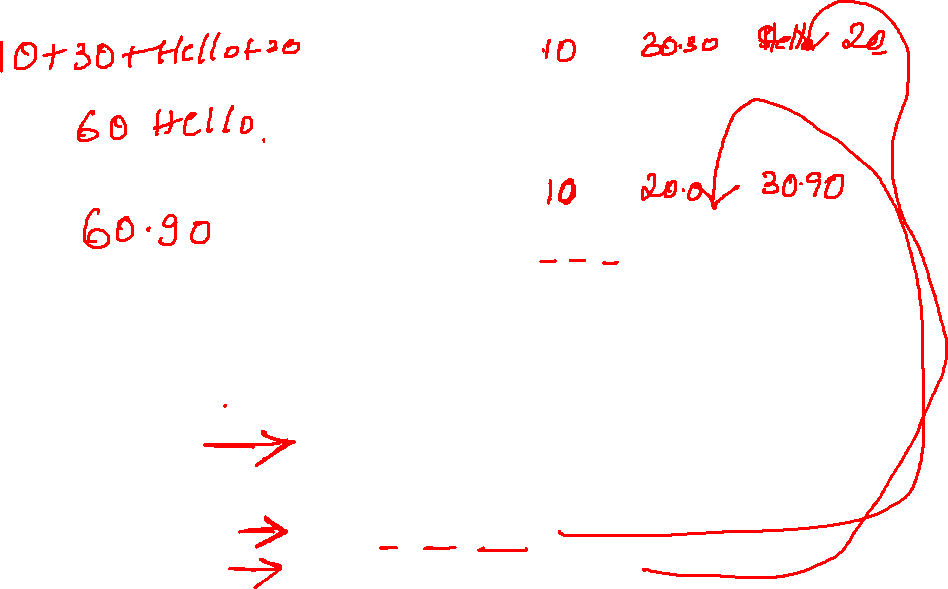 10+30+Hello+20
60 Hello.
60.90
10 30.30 Hello 20
10 20.0 30.90